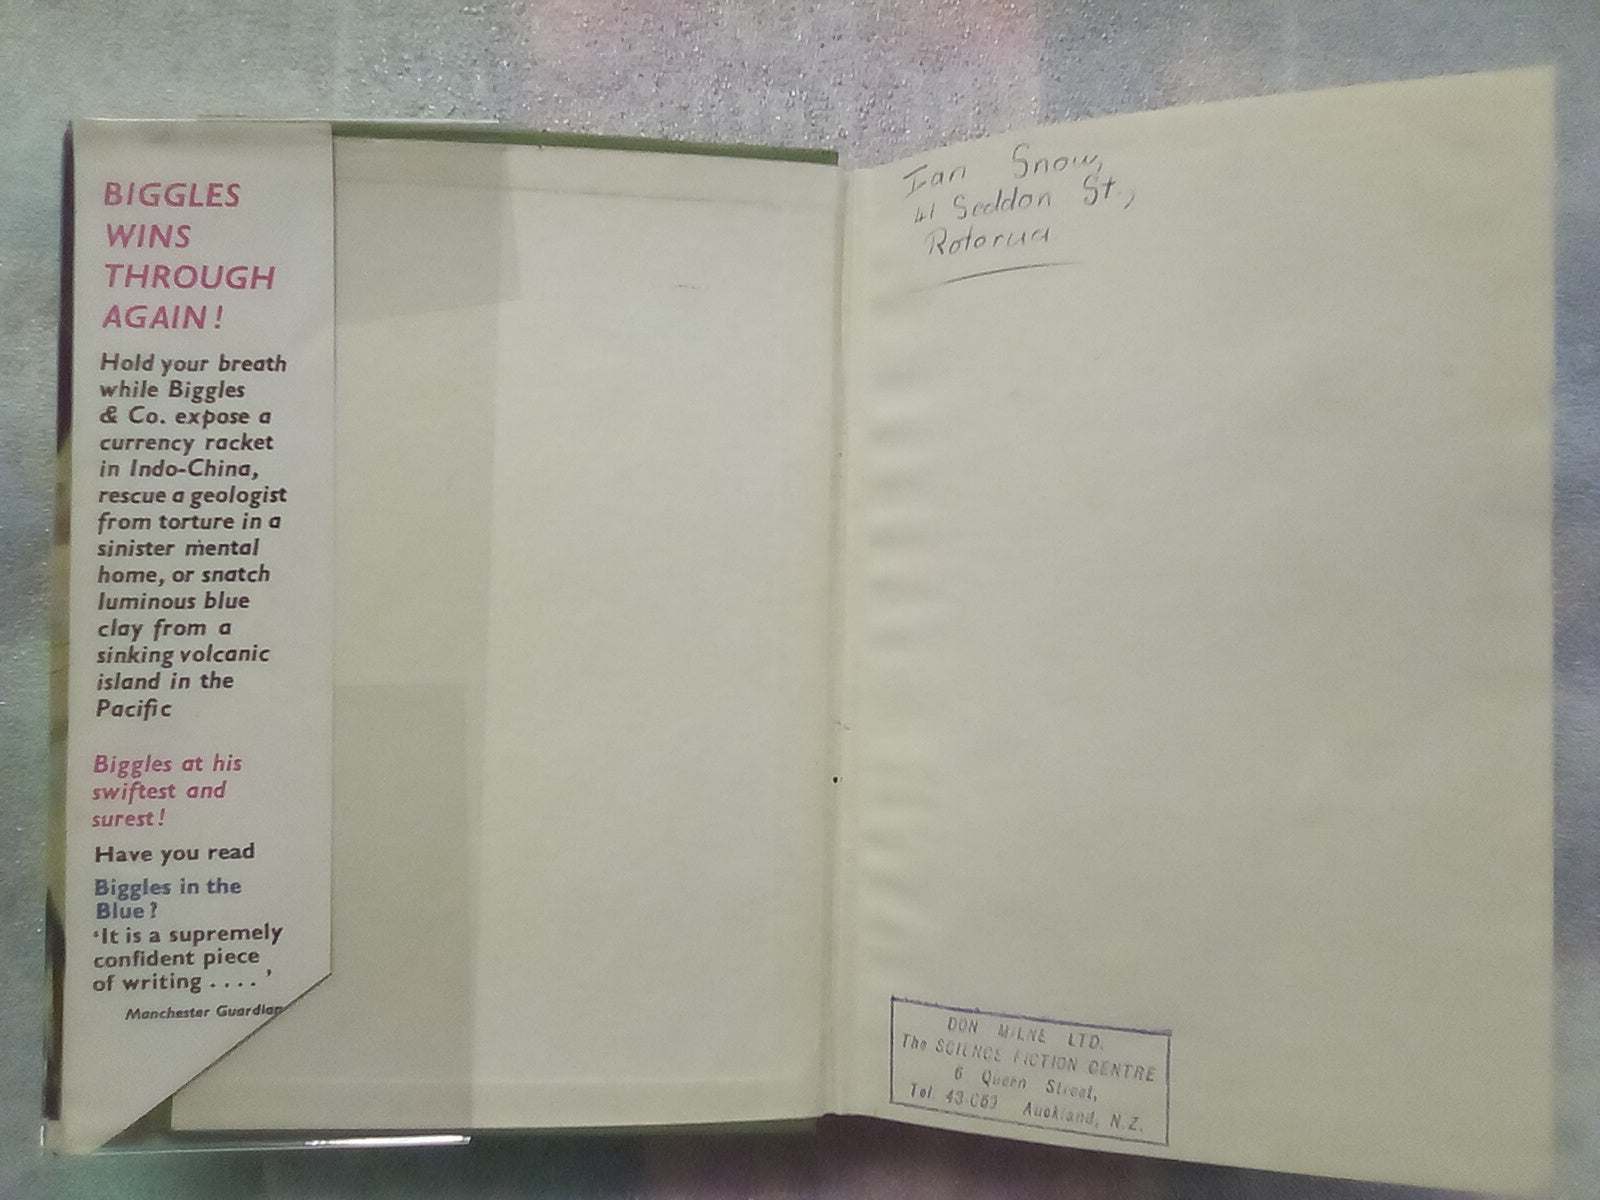 BIGGLES
WINS
THROUGH
AGAIN!
Hold your breath
while Biggles
& Co. expose a
currency racket
in Indo-China,
rescue a geologist
from torture in a
sinister mental
home, or snatch
luminous blue
clay from a
sinking volcanic
island in the
Pacific
Biggles at his
swiftest and
surest!
Have you read
Biggles in the
Blue?
‘It is a supremely
confident piece
of writing . . . .’
Manchester Guardian
Ian Snow,
41 Seddon St.,
Rotorua
DON MILNE LTD.
The SCIENCE FICTION CENTRE
6 Queen Street,
Tel. Auckland, N.Z.